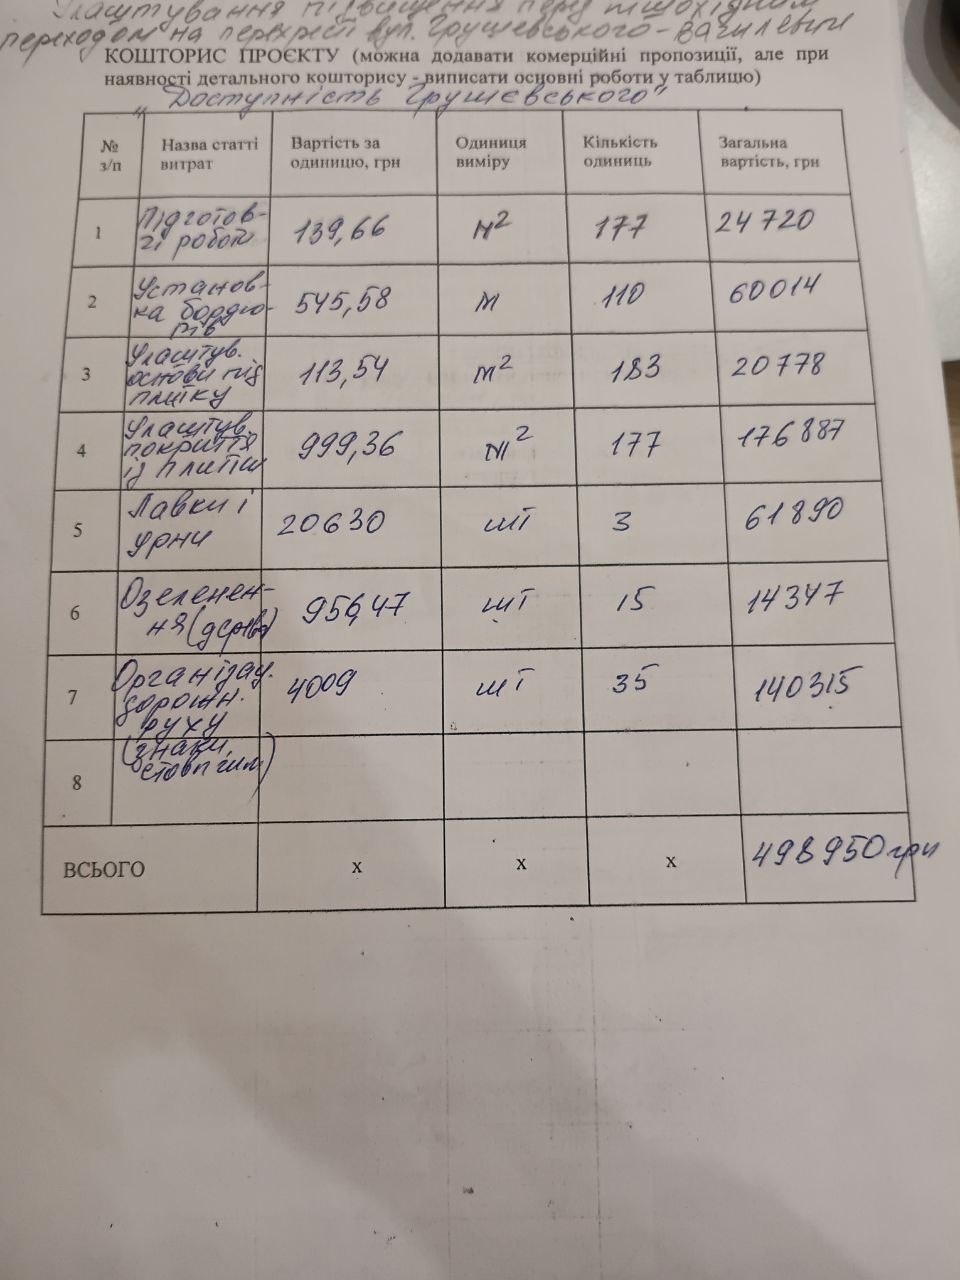 Улаштування підвищення перед пішохідним
переходом на перехресті вул. Грушевського - Вагилевича
КОШТОРИС ПРОЄКТУ (можна додавати комерційні пропозиції, але при
наявності детального кошторису - виписати основні роботи у таблицю)
"Доступність Грушевського"
№ з/п Назва статті витрат Вартість за одиницю, грн Одиниця виміру Кількість одиниць Загальна вартість, грн
1 Підготов-чі роботи 139,66 м² 177 24 720
2 Установ-ка бордю-рів 545,58 м 110 60014
3 Улаштув. основи під плитку 113,54 м² 183 20778
4 Улаштув. покриття із плитки 999,36 м² 177 176887
5 Лавки і урни 20630 шт 3 61890
6 Озеленен-ня (дерева) 956,47 шт 15 14347
7 Організац. дорожн. руху (знаки, стовпчики) 4009 шт 35 140315
8
ВСЬОГО х х х 498950 грн